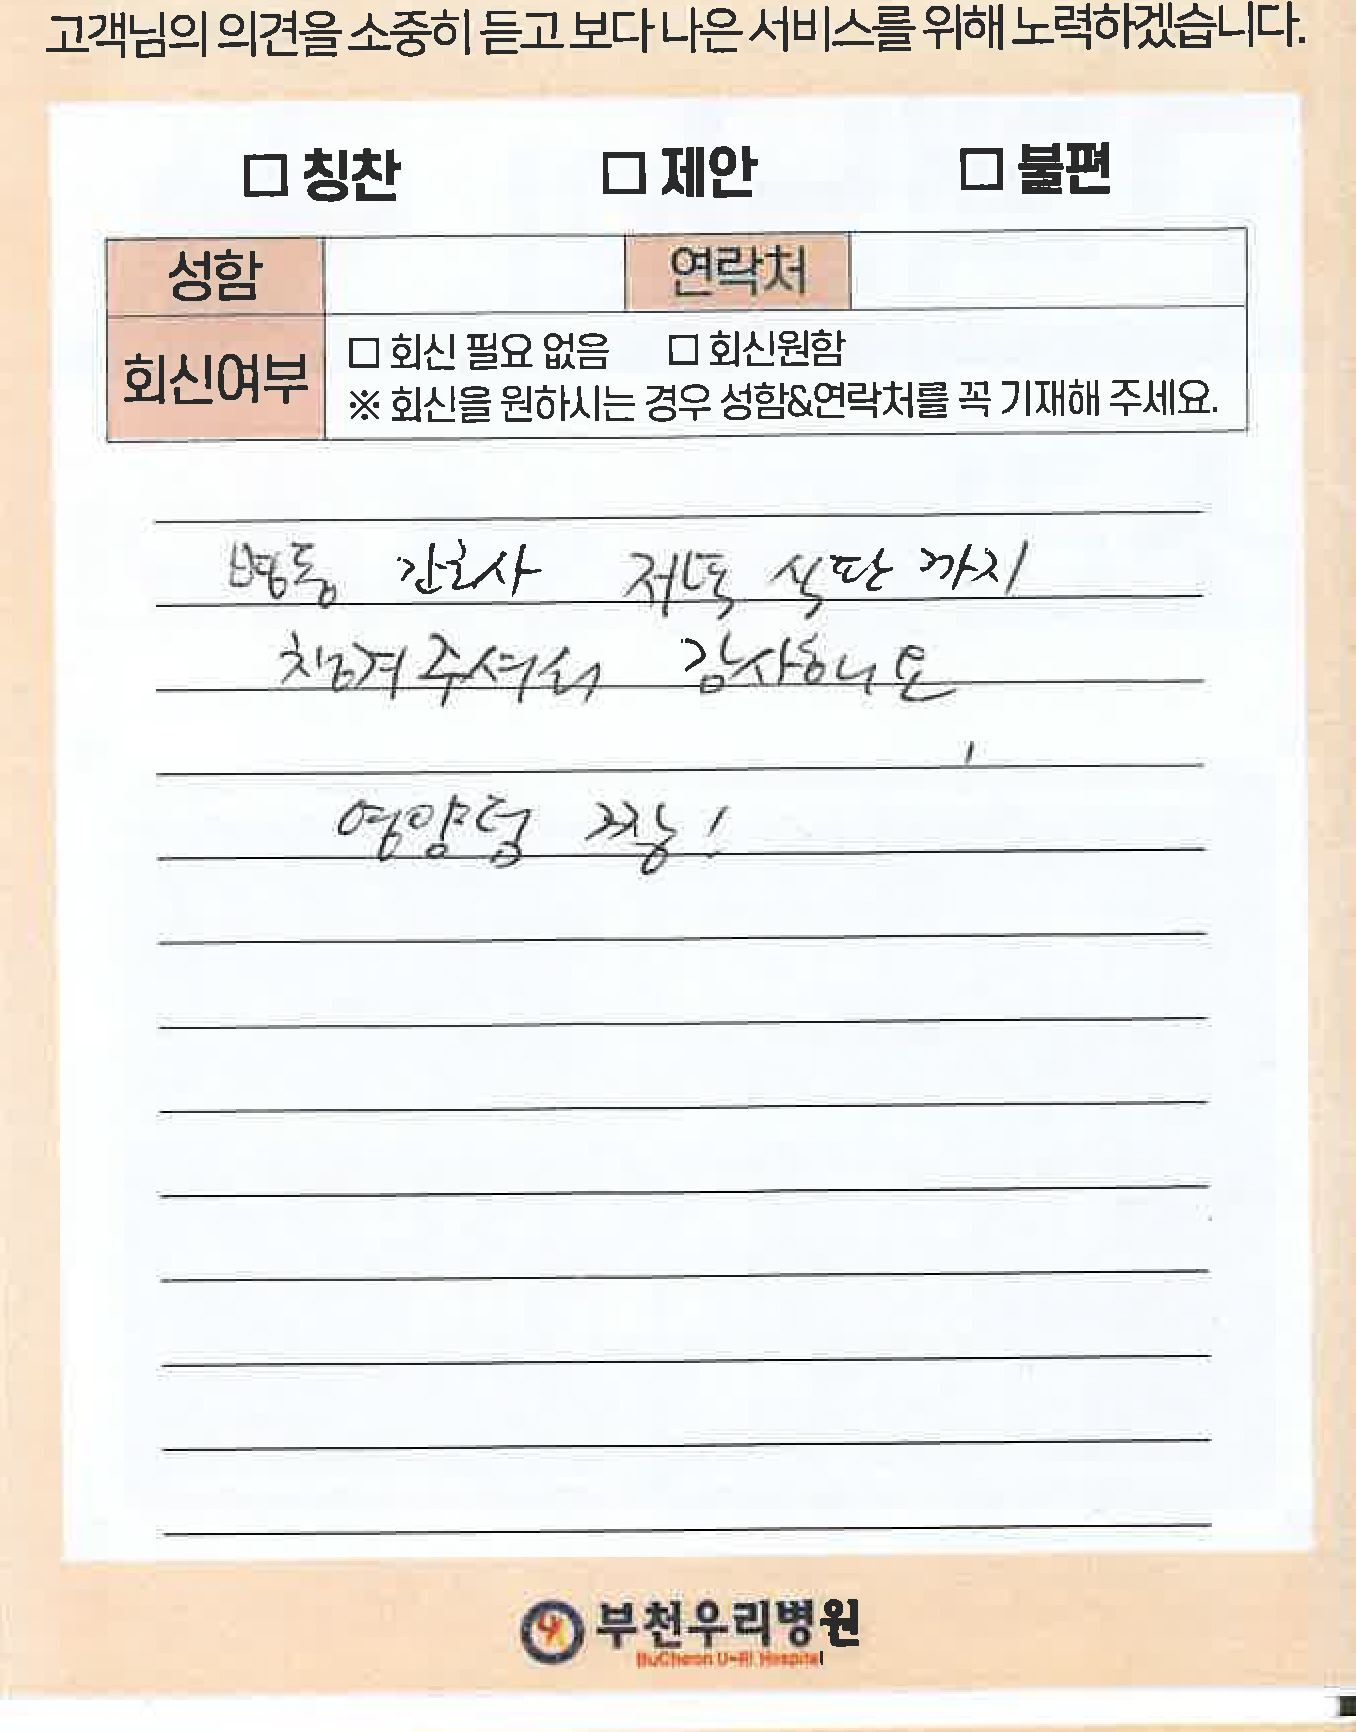 고객님의 의견을 소중히 듣고 보다 나은 서비스를 위해 노력하겠습니다.
□ 칭찬 □ 제안 □ 불편
성함 연락처
회신여부 □ 회신 필요 없음 □ 회신원함
※ 회신을 원하시는 경우 성함&연락처를 꼭 기재해 주세요.
병동 간호사 저녁 식단 까지
챙겨주셔서 감사하니요
영양팀 짱!
부천우리병원
BuCheon U-RI Hospital